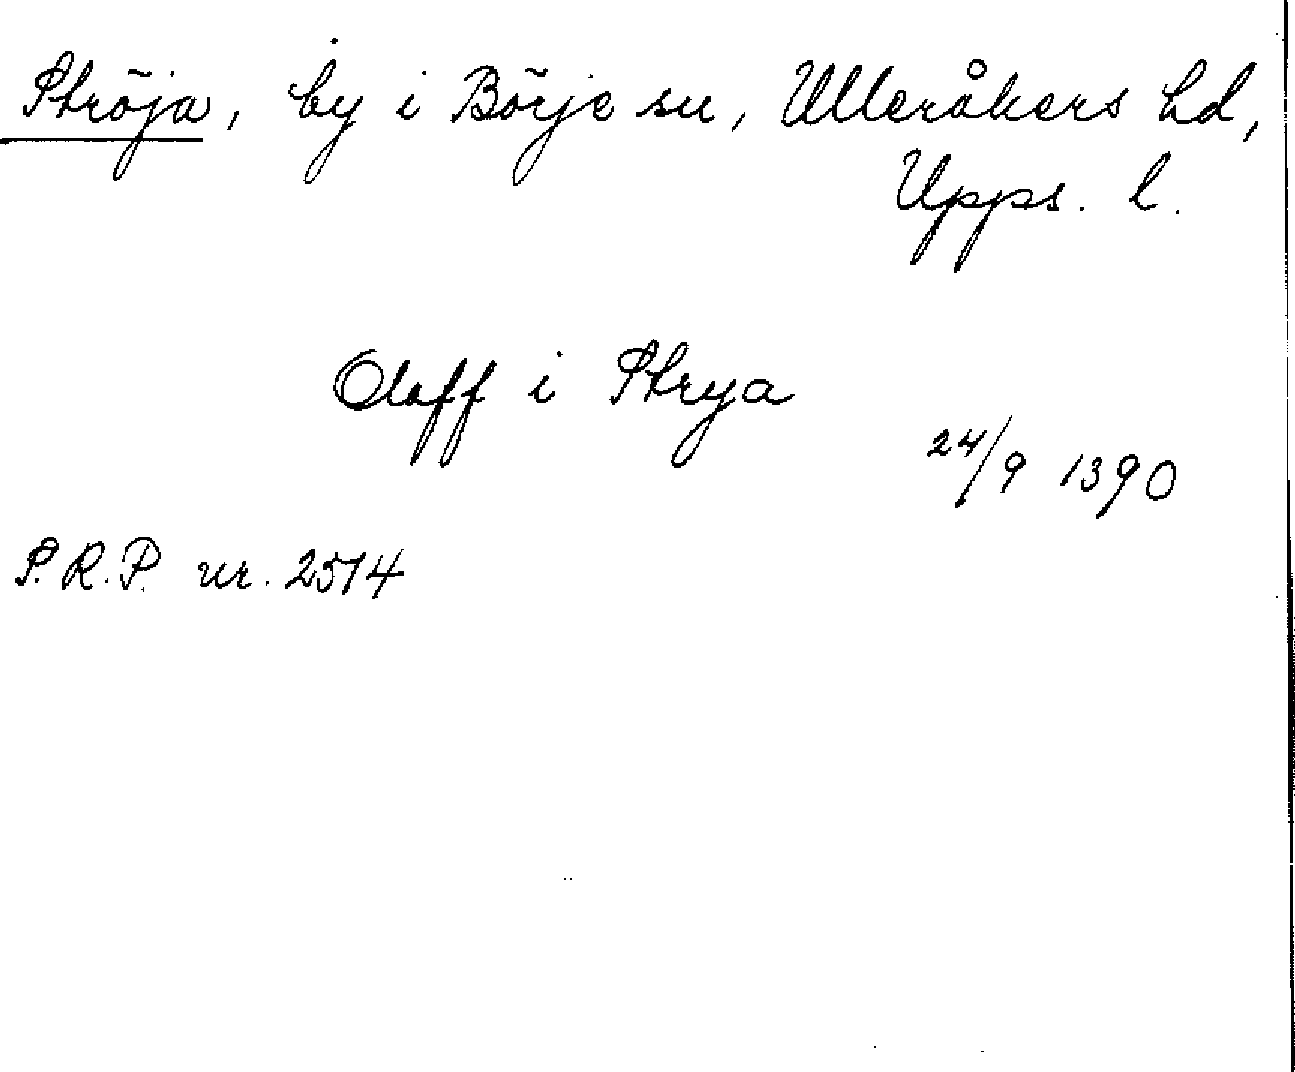 Ströja, by i Börje sn, Ulleråkers hd,
Upps. l.
Olaff i Strya
24/9 1390
S.R.P. nr. 2514